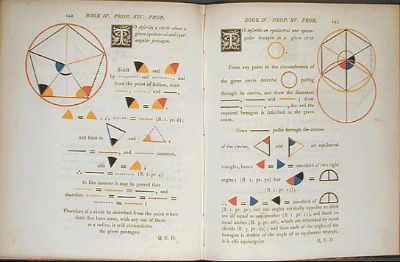 142 BOOK IV. PROP. XIV. PROB.
To describe a circle about a
given equilateral and equi-
angular pentagon.
Bisect and
by and
from the point of section, draw
and
= (B. 1. pr. 6);
and since in
and common,
also =
(B. 1. pr. 4).
In like manner it may be proved that
= = , and
therefore = = =
Therefore if a circle be described from the point where
these five lines meet, with any one of them
as a radius, it will circumscribe
the given pentagon.
Q. E. D.
BOOK IV. PROP. XV. PROB. 143
To describe an equilateral and equian-
gular hexagon in a given circle
From any point in the circumference of
the given circle describe passing
through its centre, and draw the diameters
and ; draw
&c. and the
required hexagon is inscribed in the given
circle.
Since passes through the centres
of the circles, and are equilateral
triangles, hence = = one-third of two right
angles; (B. 1. pr. 32) but =
(B. 1. pr. 13);
= = = one-third of
(B. 1. pr. 32), and the angles vertically opposite to these
are all equal to one another (B. 1. pr. 15), and stand on
equal arches (B. 3. pr. 26), which are subtended by equal
chords (B. 3. pr. 29); and since each of the angles of the
hexagon is double of the angle of an equilateral triangle,
it is also equiangular.
Q. E. D.